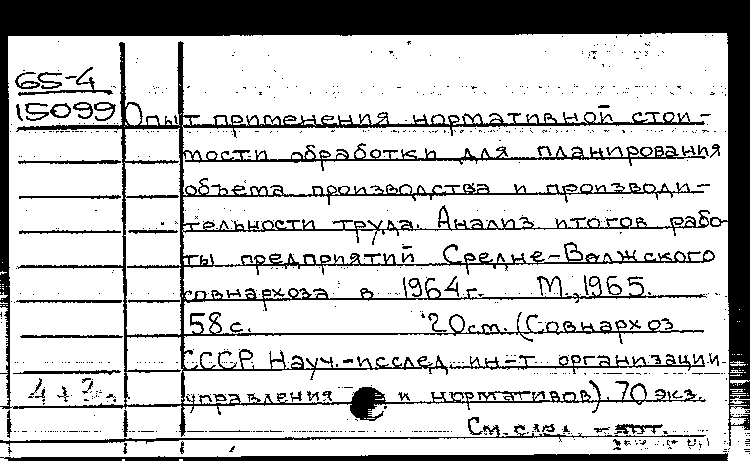 65-4
15099 Опыт применения нормативной стои-
мости обработки для планирования
объема производства и производи-
тельности труда. Анализ итогов рабо-
ты предприятий Средне-Волжского
совнархоза в 1964 г. М., 1965.
58 с. 20 см. (Совнархоз
СССР. Науч.-исслед. ин-т организации
управления и нормативов). 70 экз.
См. след.